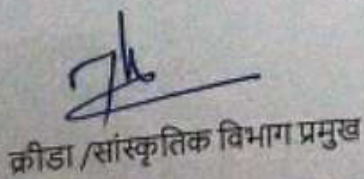 क्रीडा /सांस्कृतिक विभाग प्रमुख